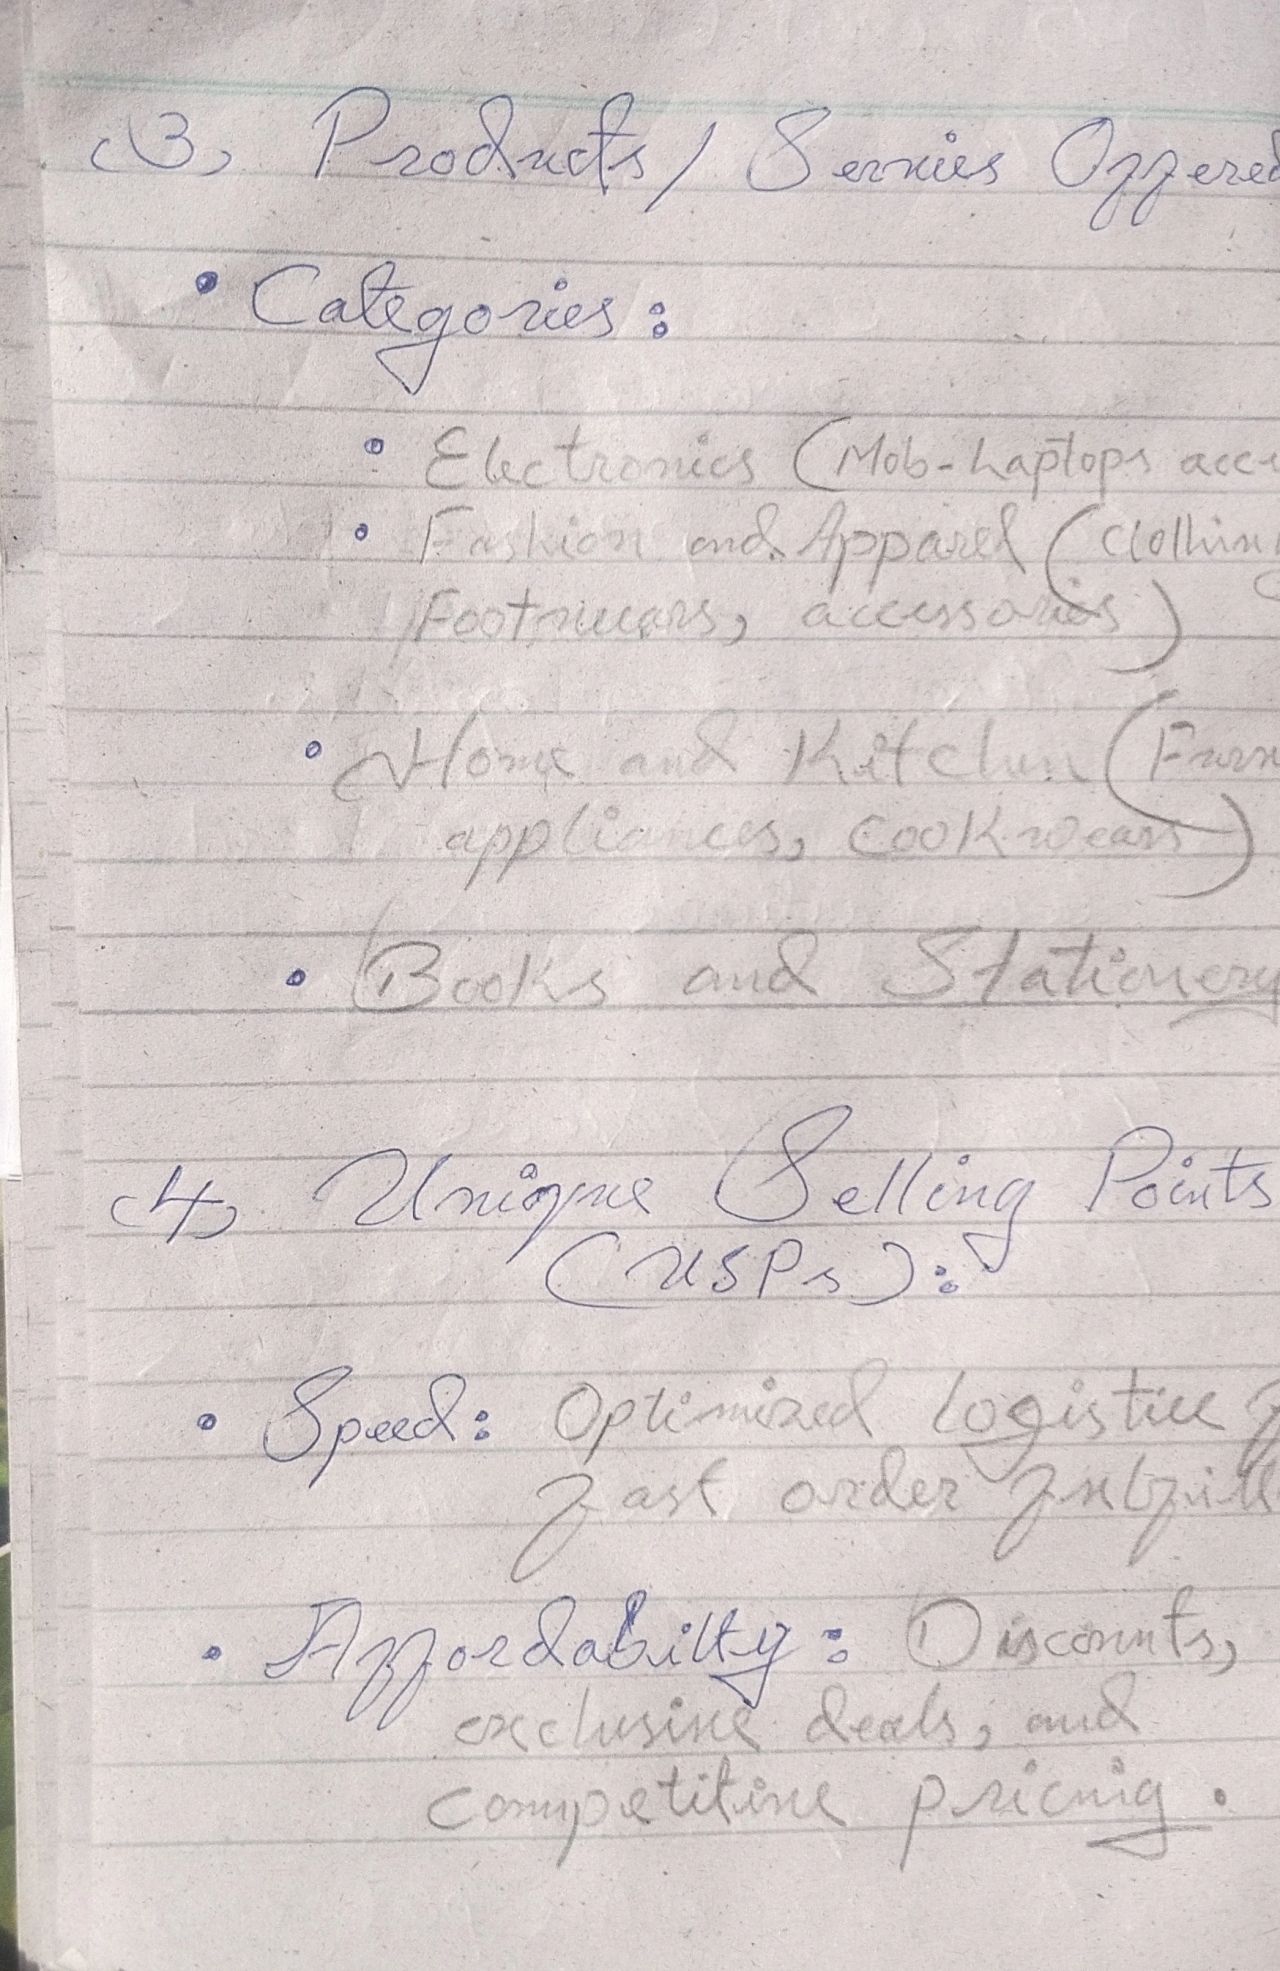 (3) Products / Servies Offered
• Categories:
• Electronics (Mob-Laptops acc
• Fashion and Apparel (Clothing
Footwears, accessories)
• Home and Kitchen (Furn
appliances, cookwears)
• Books and Stationery
(4) Unique Selling Points
(USPs):
• Speed: Optimized Logistice f
fast order fulfill
• Affordability: Discounts,
exclusive deals, and
competitive pricing.